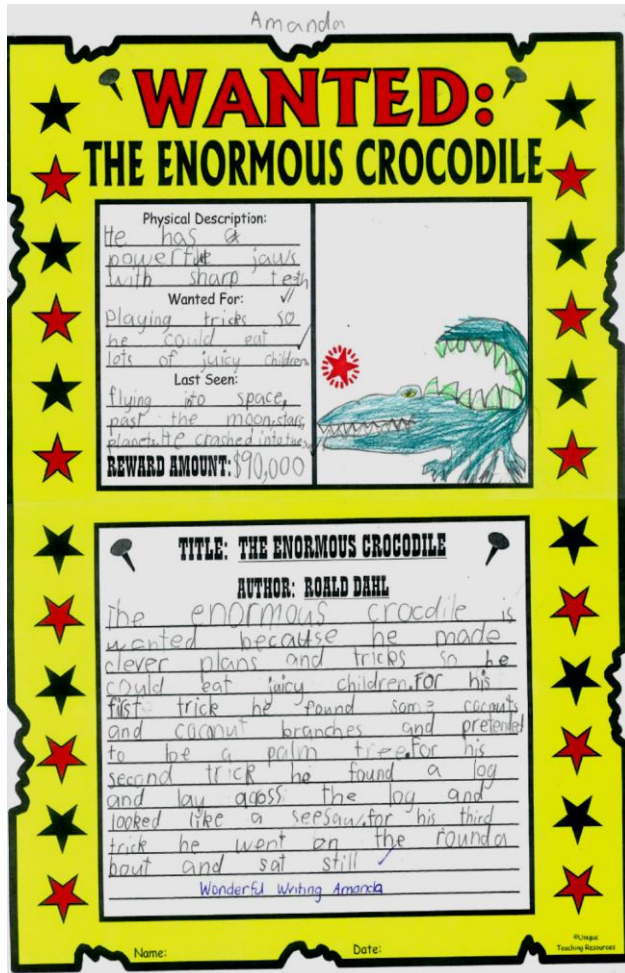 Amanda
WANTED:
THE ENORMOUS CROCODILE
Physical Description:
He has a
powerful jaws
with sharp teeth
Wanted For:
Playing tricks so
he could eat
lots of juicy children
Last Seen:
flying into space,
past the moon, stars,
planets. He crashed into the
REWARD AMOUNT: $90,000
TITLE: THE ENORMOUS CROCODILE
AUTHOR: ROALD DAHL
The enormous crocdile is
wanted because he made
clever plans and tricks so he
could eat juicy children. For his
first trick he found some coconuts
and coconut branches and pretended
to be a palm tree. for his
second trick he found a log
and lay across the log and
looked like a seesaw. for his third
trick he went on the rounda
bout and sat still
Wonderful Writing Amanda
Name:
Date:
©Unique
Teaching Resources